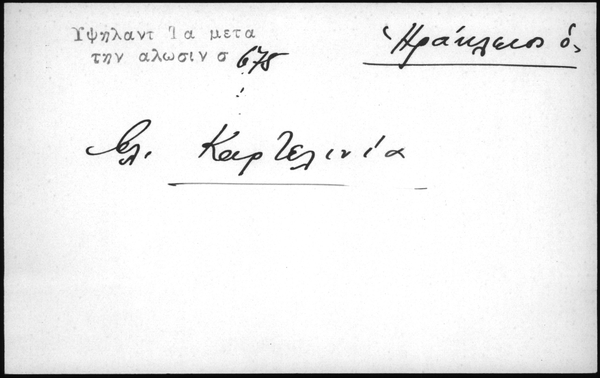 Ὑψηλαντ Τα μετα
την αλωσιν σ 678
Ἡράκλειος ὁ,
Βλ. Καρτελινία